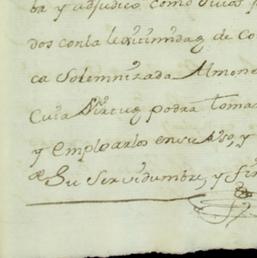 ba y adjudico como suios p
dos con la lexitimidaz de Co
ca Solemnizada Almone
Cuia Virtuz podrá toma
y emplearlos en su Uso, y
de Su Servidumbre, y fir